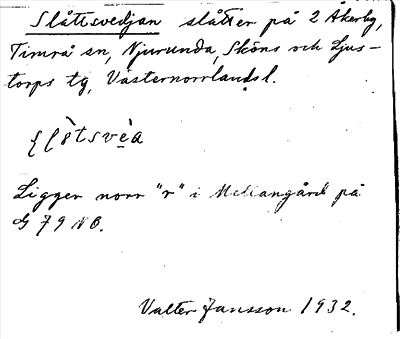 Slåttsvedjan slåtter på 2 Åkerby,
Timrå sn, Njurunda, Sköns och Ljus-
torps tg, Västernorrlands l.
slòtsvèa
Ligger norr "r" i Mellangård på
G 79 NB.
Valter Jansson 1932.